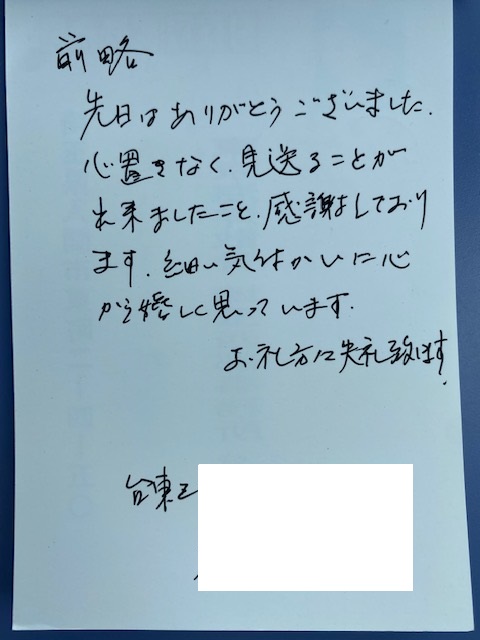 前略
先日はありがとうございました.
心置きなく、見送ることが
出来ましたこと、感謝しており
ます. 細い気づかいに心
から嬉しく思っています.
お礼方々失礼致します.
台東区